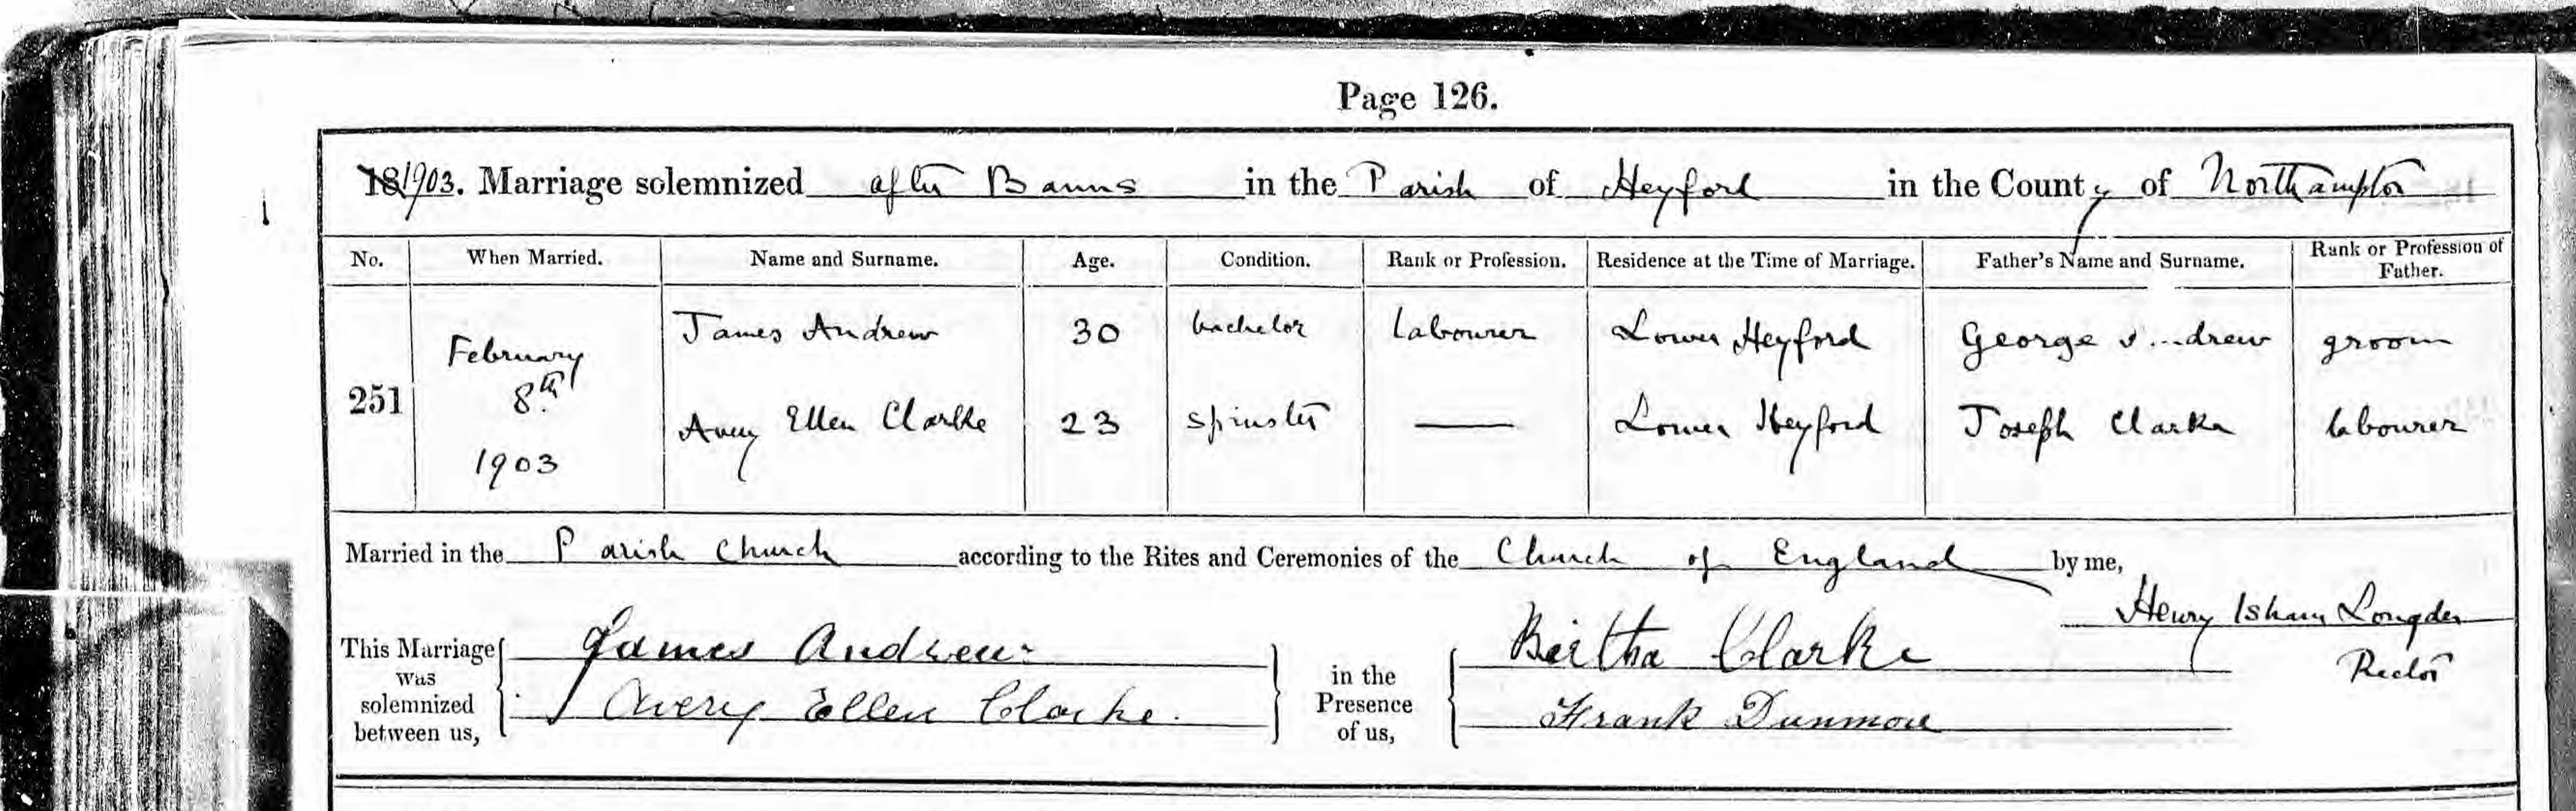 Page 126.
18 1903. Marriage solemnized after Banns in the Parish of Heyford in the County of Northampton
No. When Married. Name and Surname. Age. Condition. Rank or Profession. Residence at the Time of Marriage. Father's Name and Surname. Rank or Profession of Father.
251 February 8th 1903
James Andrew 30 bachelor labourer Lower Heyford George drew groom
Avery Ellen Clarke 23 spinster — Lower Heyford Joseph Clarke labourer
Married in the Parish Church according to the Rites and Ceremonies of the Church of England by me,
Henry Isham Longden
Rector
This Marriage was solemnized between us, James Andrew
Avery Ellen Clarke.
in the Presence of us, Bertha Clarke
Frank Dunmore